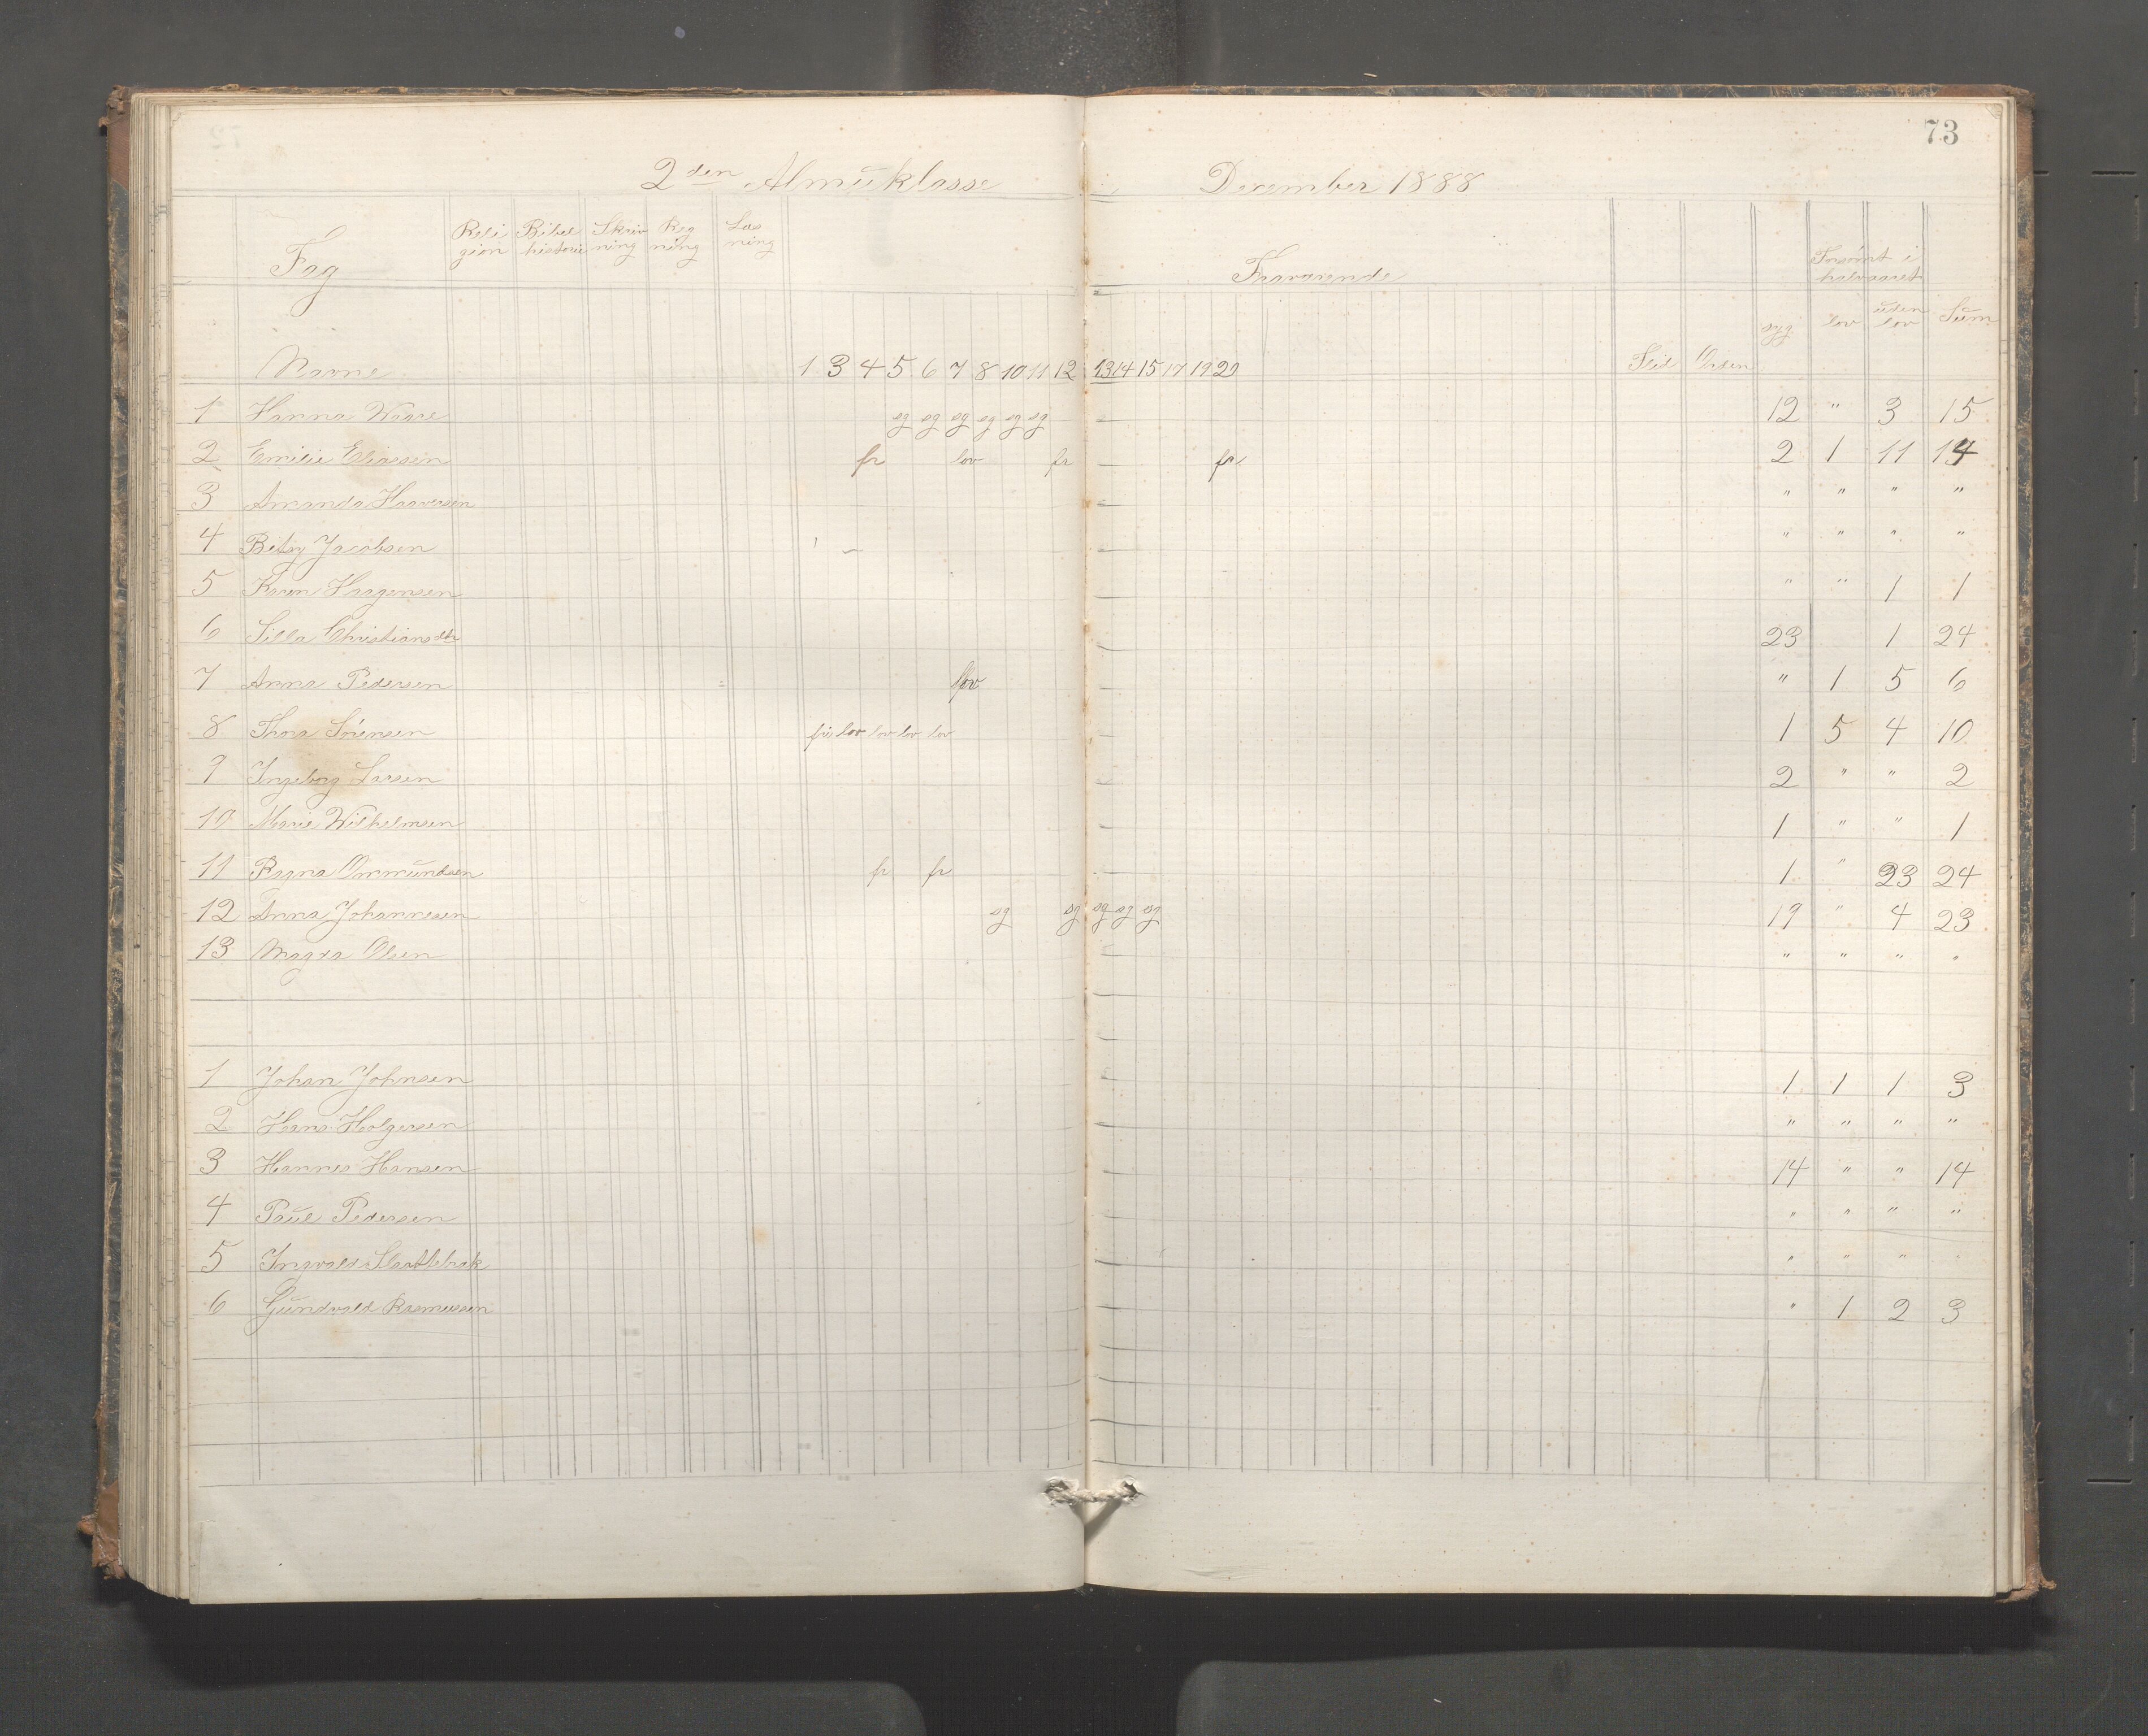 73
2den Almuklasse December 1888
Fag Religion Bibelhistorie Skrivning Regning Læsning Fraværende Forsømt i halvaaret
Navne 1 3 4 5 6 7 8 10 11 12 13 14 15 17 19 20 Flid Orden syg lov uden lov Sum
1 Hanna sg sg sg sg sg sg 12 " 3 15
2 Emilie Eliassen fr lov fr fr 2 1 11 14
3 Amanda Haaversen " " " "
4 Betsy Jacobsen " " " "
5 Karen Haagensen " " 1 1
6 Silla Christiansdtr 23 1 24
7 Anna Pedersen lov " 1 5 6
8 Thora Sörensen fri lov lov lov lov 1 5 4 10
9 Ingeborg Larsen 2 " " 2
10 Marie Wilhelmsen 1 " " 1
11 Ragna Ommundsen fr fr 1 " 23 24
12 Anna Johannesen sg sg sg sg sg 19 " 4 23
13 Magda Olsen " " " "
1 Johan Johnsen 1 1 1 3
2 Hans Holgersen " " " "
3 Hannes Hansen 14 " " 14
4 Paul Pedersen " " " "
5 Ingvald " " "
6 Gundvald Rasmussen " 1 2 3